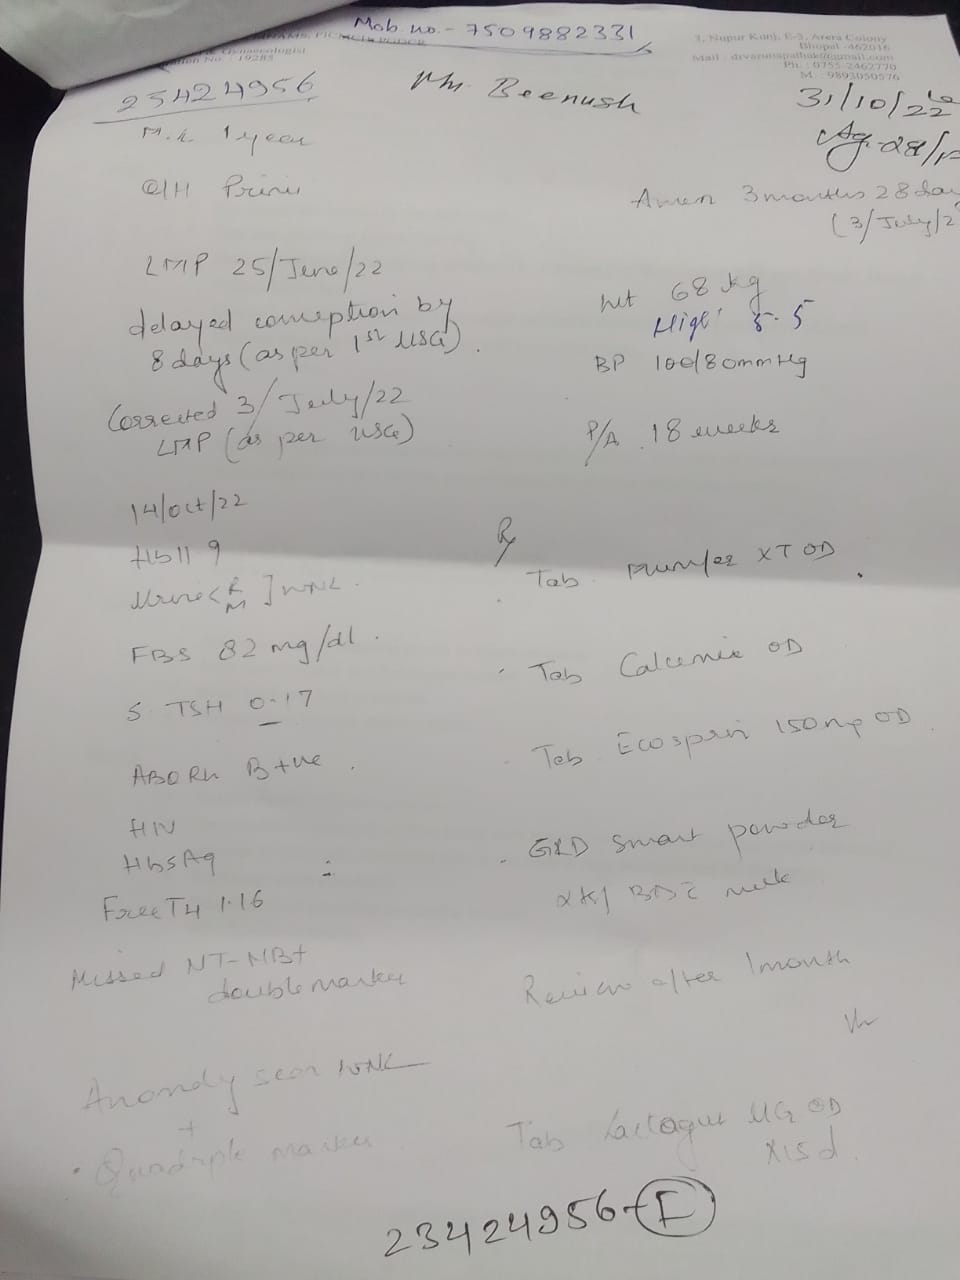 Mob. no. - 7509882331
3, Nupur Kunj, E-3, Arera Colony
Bhopal - 462016
Ph. : 0755-2462770
M. : 9893050576
25424956
Beenush
31/10/22
M.L 1 year
O/H Primi
Amen 3 months 28 day
(3/July/2
LMP 25/June/22
delayed conception by
8 days (as per 1st USG).
Corrected 3/July/22
LMP (as per USG)
wt 68 kg
High 5.5
BP 100/80mmHg
P/A 18 weeks
14/Oct/22
Hb 11 9
Urine < R M ] WNL.
FBS 82 mg/dl.
S. TSH 0.17
ABO Rh B+ve.
HIV
HbsAg
Free T4 1.16
Missed NT-NB+
double marker
Anomaly scan WNL
+
Quadruple marker
Rx
Tab. XT OD
Tab OD
Tab Ecosprin 150mg OD
GRD smart powder
milk
Review after 1 month
Tab OD
x15d.
23424956-F